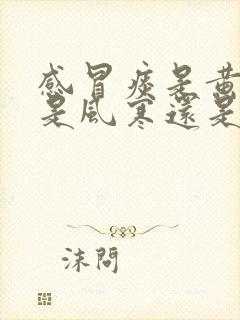 感冒痰是黃
是風寒還是
沫問